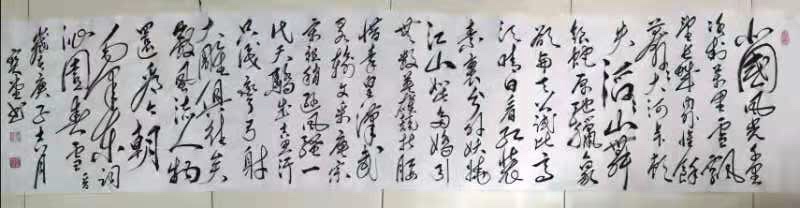 北國風光千里
冰封萬里雪飄
望長城內外惟餘
莽莽大河上下頓
失滔滔山舞
銀蛇原馳蠟象
欲與天公試比高
須晴日看紅裝
素裹分外妖嬈
江山如此多嬌引
無數英雄競折腰
惜秦皇漢武
略輸文采唐宗
宋祖稍遜風騷一
代天驕成吉思汗
只識彎弓射
大雕俱往矣
數風流人物
還看今朝
毛澤東詞
沁園春雪
歲庚子六月